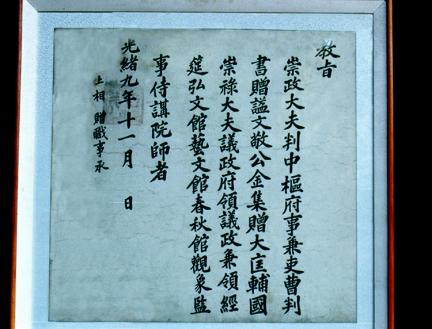 敎旨
崇政大夫判中樞府事兼吏曹判
書贈謚文敬公金集贈大匡輔國
崇祿大夫議政府領議政兼領經
筵弘文館藝文館春秋館觀象監
事侍講院師者
光緖九年十一月 日
上相贈職事承